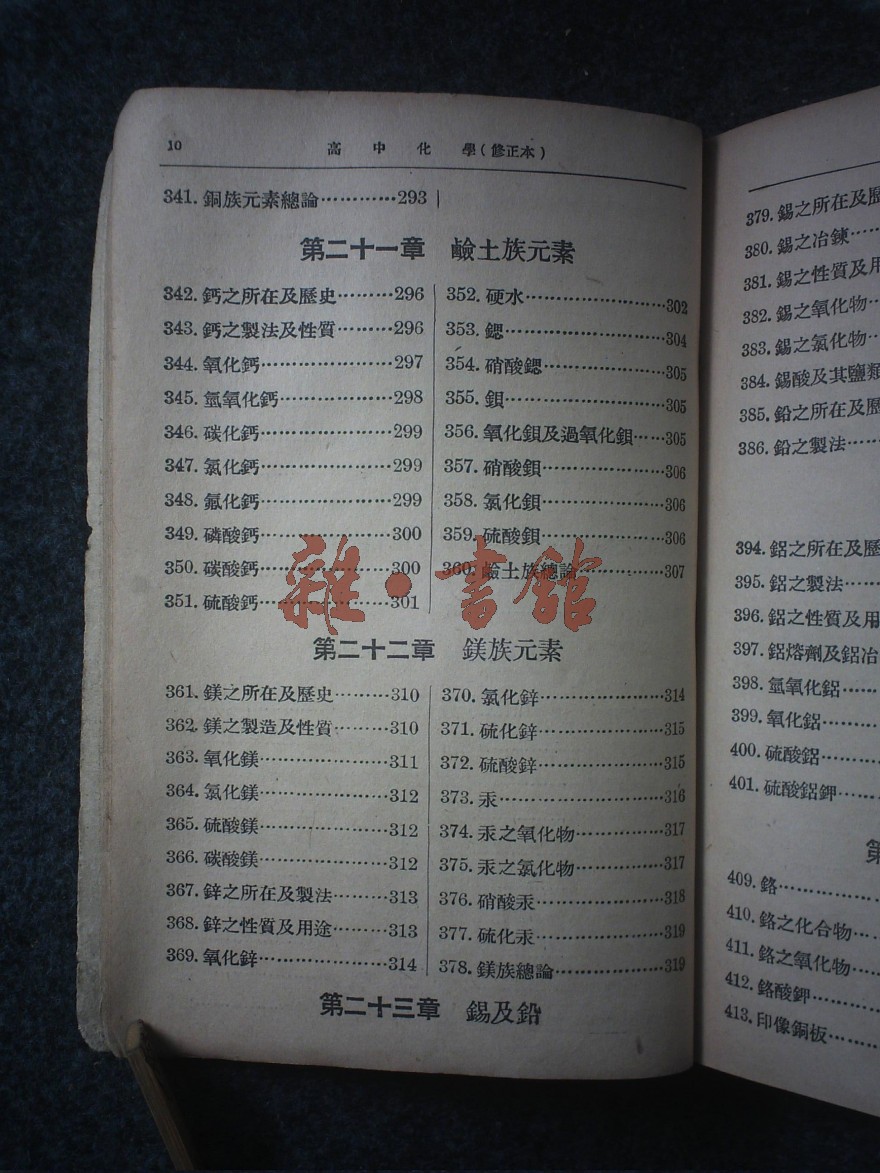 10 高中化學(修正本)
341. 銅族元素總論…………293
第二十一章 鹼土族元素
342. 鈣之所在及歷史………296
343. 鈣之製法及性質………296
344. 氧化鈣………………297
345. 氫氧化鈣……………298
346. 碳化鈣………………299
347. 氯化鈣………………299
348. 氟化鈣………………299
349. 磷酸鈣………………300
350. 碳酸鈣………………300
351. 硫酸鈣………………301
352. 硬水…………………302
353. 鍶……………………304
354. 硝酸鍶………………305
355. 鋇……………………305
356. 氧化鋇及過氧化鋇……305
357. 硝酸鋇………………306
358. 氯化鋇………………306
359. 硫酸鋇………………306
360. 鹼土族總論…………307
雜·書館
第二十二章 鎂族元素
361. 鎂之所在及歷史………310
362. 鎂之製造及性質………310
363. 氧化鎂………………311
364. 氯化鎂………………312
365. 硫酸鎂………………312
366. 碳酸鎂………………312
367. 鋅之所在及製法………313
368. 鋅之性質及用途………313
369. 氧化鋅………………314
370. 氯化鋅………………314
371. 硫化鋅………………315
372. 硫酸鋅………………315
373. 汞……………………316
374. 汞之氧化物…………317
375. 汞之氯化物…………317
376. 硝酸汞………………318
377. 硫化汞………………319
378. 鎂族總論……………319
第二十三章 錫及鉛
379. 錫之所在及歷
380. 錫之冶鍊……
381. 錫之性質及用
382. 錫之氧化物…
383. 錫之氯化物…
384. 錫酸及其鹽類
385. 鉛之所在及歷
386. 鉛之製法……
394. 鋁之所在及歷
395. 鋁之製法……
396. 鋁之性質及用
397. 鋁熔劑及鋁冶
398. 氫氧化鋁……
399. 氧化鋁………
400. 硫酸鋁………
401. 硫酸鋁鉀……
第
409. 鉻……………
410. 鉻之化合物…
411. 鉻之氧化物…
412. 鉻酸鉀………
413. 印像銅板……